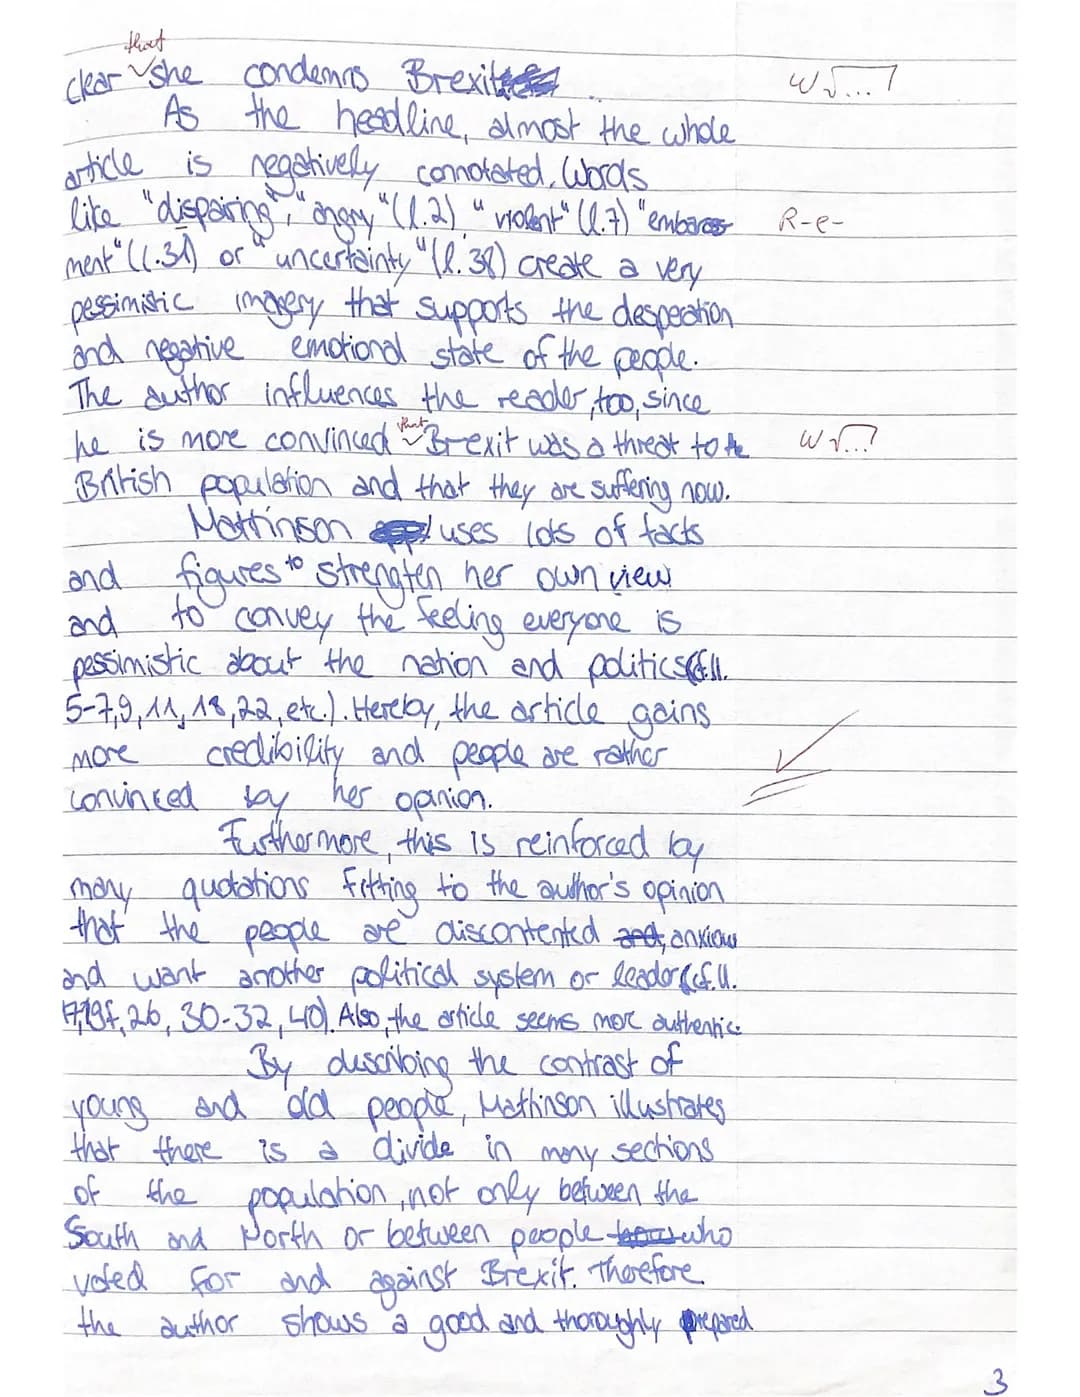 that
clear she condemns Brexit W √...7
As the headline, almost the whole
article is negatively connotated. Words
like "dispairing", "angry" (l.2) "violent" (l.7) "embarass- R-e-
ment" (l.31) or "uncertainty" (l.38) create a very
pessimistic imagery that supports the desperation
and negative emotional state of the people.
The author influences the reader, too, since
that
he is more convinced Brexit was a threat to the W √...?
British population and that they are suffering now.
Mattinson uses lots of facts
and figures to strengten her own view
and to convey the feeling everyone is
pessimistic about the nation and politics (cf. ll.
5-7,9,11,18,22,etc.). Hereby, the article gains
more credibility and people are rather
convinced by her opinion.
Furthermore, this is reinforced by
many quotations fitting to the author's opinion
that the people are discontented and, anxious
and want another political system or leader (cf. ll.
17,19f,26,30-32,40). Also, the article seems more authentic.
By describing the contrast of
young and old people, Mattinson illustrates
that there is a divide in many sections
of the population, not only between the
South and North or between people who
voted for and against Brexit. Therefore
the author shows a good and thoroughly prepared
3